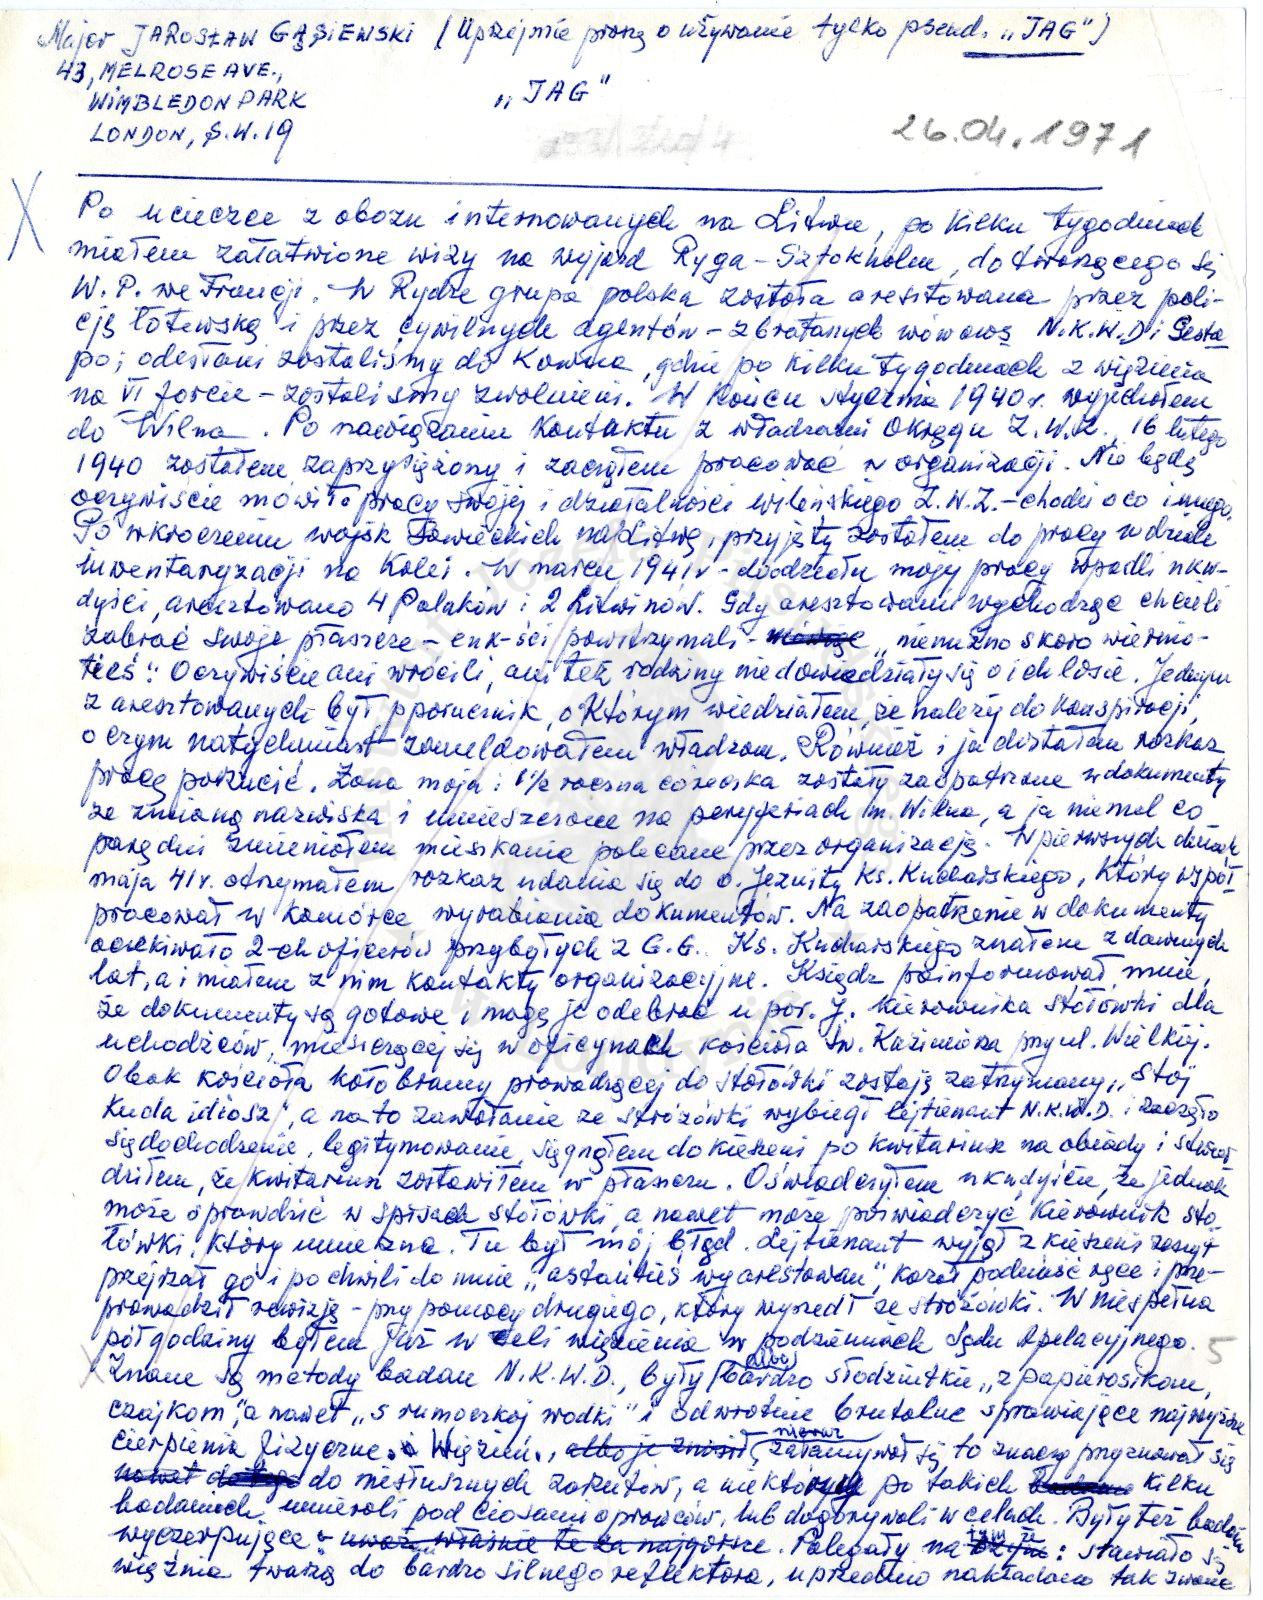 Major JAROSŁAW GĄSIEWSKI (Uprzejmie proszę o używanie tylko pseud. „JAG")
43, MELROSE AVE.,
WIMBLEDON PARK
LONDON, S.W.19
„JAG"
26.04.1971
X
Po ucieczce z obozu internowanych na Litwie, po kilku tygodniach
miałem załatwione wizy na wyjazd Ryga – Sztokholm, do tworzącego się
W.P. we Francji. W Rydze grupa polska została aresztowana przez poli-
cję łotewską i przez cywilnych agentów – zbratanych wówczas N.K.W.D i Gesta
po; odesłani zostaliśmy do Kowna, gdzie po kilku tygodniach z więzienia
na VI forcie – zostaliśmy zwolnieni. W końcu stycznia 1940 r. wyjechałem
do Wilna. Po nawiązaniu kontaktu z władzami Okręgu Z.W.Z. 16 lutego
1940 zostałem zaprzysiężony i zacząłem pracować w organizacji. Nie będę
oczywiście mówił o pracy swojej i działalności wileńskiego Z.W.Z. – chodzi o co innego.
Po wkroczeniu wojsk sowieckich na Litwę, przyjęty zostałem do pracy w dziale
inwentaryzacji na Kolei. W marcu 1941 r – do działu mojej pracy wpadli nkw-
dyści, aresztowano 4 Polaków i 2 Litwinów. Gdy aresztowani wychodząc chcieli
zabrać swoje płaszcze – enk-ści powstrzymali – mówiąc „nienużno skoro wiernio-
tieś". Oczywiście ani wrócili, ani też rodziny nie dowiedziały się o ich losie. Jednym
z aresztowanych był pporucznik, o którym wiedziałem, że należy do konspiracji,
o czym natychmiast zameldowałem władzom. Również i ja dostałem rozkaz
pracę porzucić. Żona moja i 1½ roczna córeczka zostały zaopatrzone w dokumenty
ze zmianą nazwiska i umieszczone na peryferiach m. Wilna, a ja niemal co
parę dni zmieniałem mieszkanie polecane przez organizację. W pierwszych dniach
maja 41 r. otrzymałem rozkaz udania się do o. Jezuity Ks. Kucharskiego, który współ-
pracował w komórce wyrabiania dokumentów. Na zaopatrzenie w dokumenty
oczekiwało 2-ch oficerów przybyłych z G.G. Ks. Kucharskiego znałem z dawnych
lat, a i miałem z nim kontakty organizacyjne. Ksiądz poinformował mnie,
że dokumenty są gotowe i mogę je odebrać u por. J. kierownika stołówki dla
uchodźców, mieszczącej się w oficynach kościoła Św. Kazimierza przy ul. Wielkiej.
Obok kościoła koło bramy prowadzącej do stołówki zostaję zatrzymany, „Stój
kuda idiosz", a na to zawołanie ze stróżówki wybiegł lejtienant N.K.W.D. i zaczęło
się dochodzenie, legitymowanie, sięgnąłem do kieszeni po kwitariusz na obiady i stwier
dziłem, że kwitariusz zostawiłem w płaszczu. Oświadczyłem nkwdyście, że jednak
może sprawdzić w spisach stołówki, a nawet może poświadczyć kierownik sto-
łówki, który mnie zna. Tu był mój błąd. Lejtienant wyjął z kieszeni zeszyt
przejrzał go i po chwili do mnie „astańtieś wy arestowan", kazał podnieść ręce i prze-
prowadził rewizję – przy pomocy drugiego, który wyszedł ze stróżówki. W niespełna
pół godziny byłem już w celi więzienia w podziemiach Sądu Apelacyjnego. 5
Znane są metody badań N.K.W.D., były albo bardzo słodziutkie „z papierosikom,
czajkom", a nawet „s rumoczkoj wodki" i odwrotnie brutalne sprawiające najwyższe
cierpienia fizyczne. Więzień, albo je znosił, nieraz załamywał się, to znaczy przyznawał się
nawet do niesłusznych zarzutów, a niektórzy po takich kilku
badaniach, umierali pod ciosami oprawców, lub dogorywali w celach. Były też badania
wyczerpujące – uważ. właśnie te za najgorsze. Polegały na tym że: stawiało się
więźnia twarzą do bardzo silnego reflektora, uprzednio nakładano tak zwane